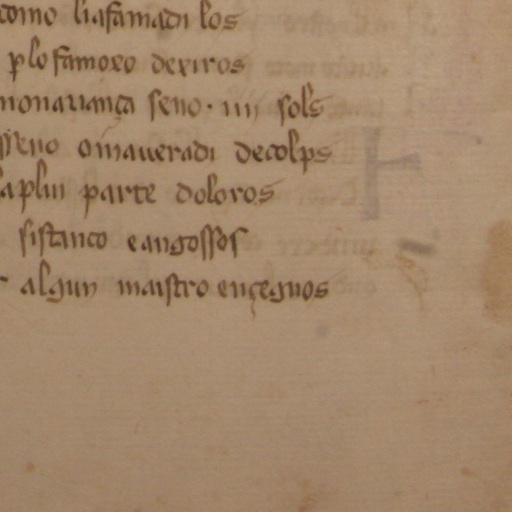 como liafamadi los
plo famoxo dexiros
nonauança seno · iiij sols
sseno omaueradi decolps
laplui parte doloros
sistanco e angossos
algun maistroençegnos